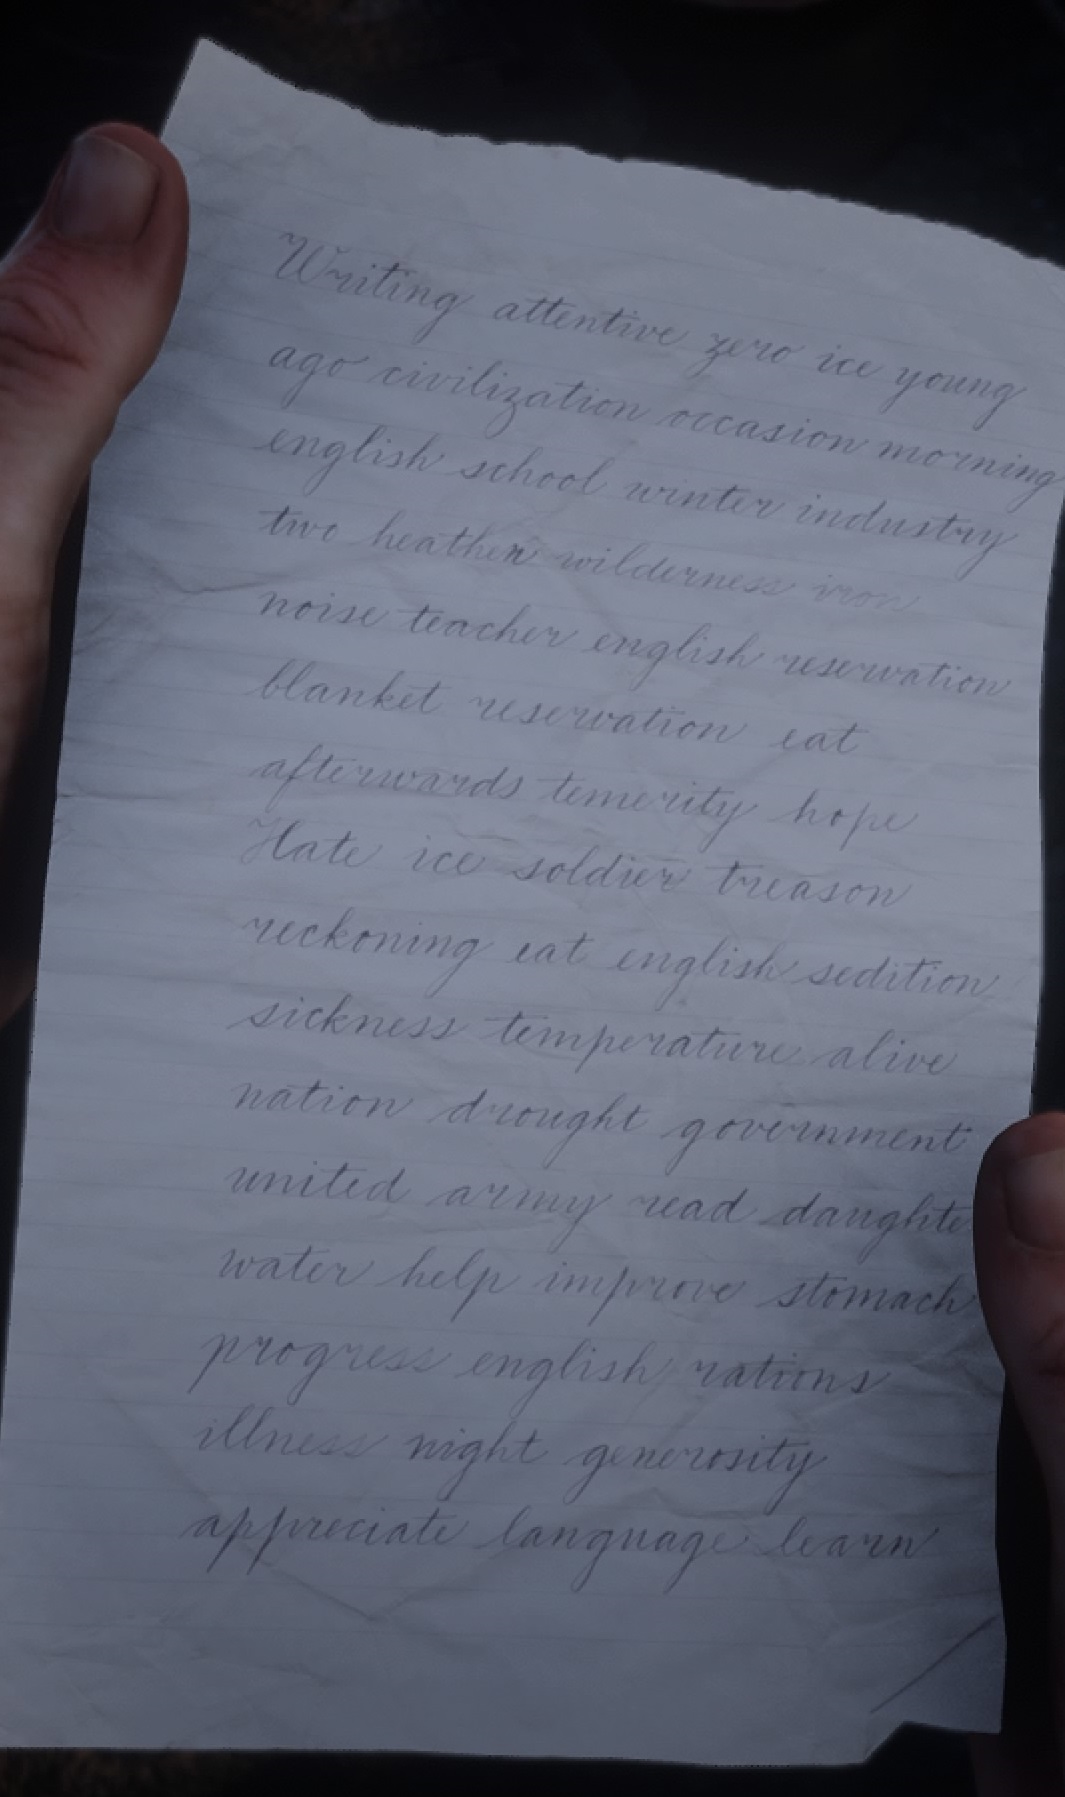 Writing attentive zero ice young
ago civilization occasion morning
english school winter industry
two heathen wilderness iron
noise teacher english reservation
blanket reservation eat
afterwards temerity hope
Hate ice soldier treason
reckoning eat english sedition
sickness temperature alive
nation drought government
united army read daughte
water help improve stomach
progress english rations
illness night generosity
appreciate language learn